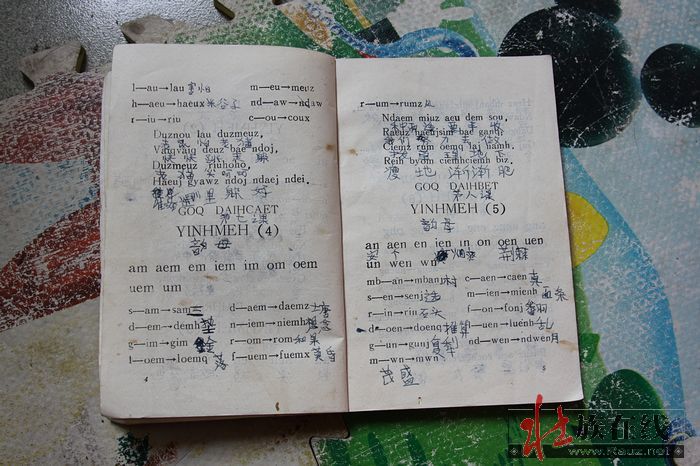 l—au→lau 害怕
m—eu→meuz
h—aeu→haeux 米谷子
nd—aw→ndaw
r—iu→riu
c—ou→coux
Duznou lau duzmeuz,
老鼠怕老猫
Vaiqvaiq deuz bae ndoj,
快快跳去躲
Duzmeuz riuhoho,
老猫笑呵呵
Haeuj gyawz ndoj ndaej ndei.
哪里躲好
GOQ DAIHCAET
第七课
YINHMEH (4)
韵母
am aem em iem im om oem
uem um
s—am→sam 三
d—aem→daemz
d—em→demh 垫
n—iem→niemh 念
g—im→gim 金
r—om→rom
l—oem→loemq 落
f—uem→fuemx 黄昏
4
r—um→rumz 风
Ndaem miuz aeu dem sou,
Raeuz haeujsim bae ganq,
Ciemz rum oemq laj hamh,
Reih byom cienhciemh biz.
瘦地渐渐肥
GOQ DAIHBET
第八课
YINHMEH (5)
韵母
an aen en ien in on oen uen
un wen wn
个 荆棘
mb—an→mbanj 村
c—aen→caen 真
s—en→senj 选
m—ien→mienh 面条
r—in→rin 石头
f—on→fonj
d—oen→doenq 推算
l—uen→luenh 乱
g—un→gunj
nd—wen→ndwen 月
m—wn→mwn
茂盛
5
壮族在线
www.Rauz.net